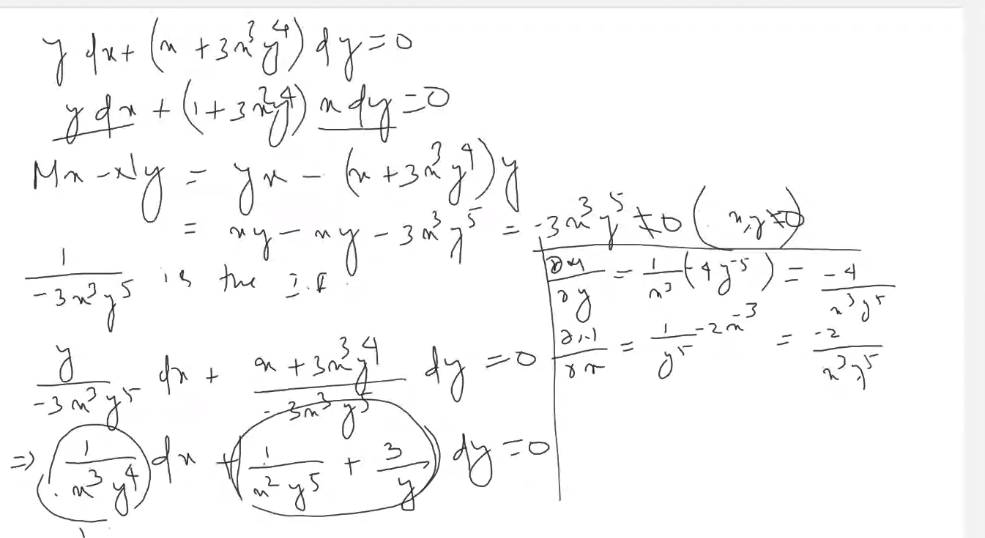 y dx + (x + 3x³y⁴) dy = 0
y dx + (1 + 3x²y⁴) x dy = 0
Mx - Ny = yx - (x + 3x³y⁴) y
= xy - xy - 3x³y⁵ = -3x³y⁵ ≠ 0 (x,y ≠ 0)
1/(-3x³y⁵) is the I.F.
y/(-3x³y⁵) dx + (x + 3x³y⁴)/(-3x³y⁵) dy = 0
⇒ (1/(x³y⁴)) dx + (1/(x²y⁵) + 3/y) dy = 0
∂M/∂y = 1/x³ (-4y⁻⁵) = -4/(x³y⁵)
∂N/∂x = 1/y⁵ -2x⁻³ = -2/(x³y⁵)